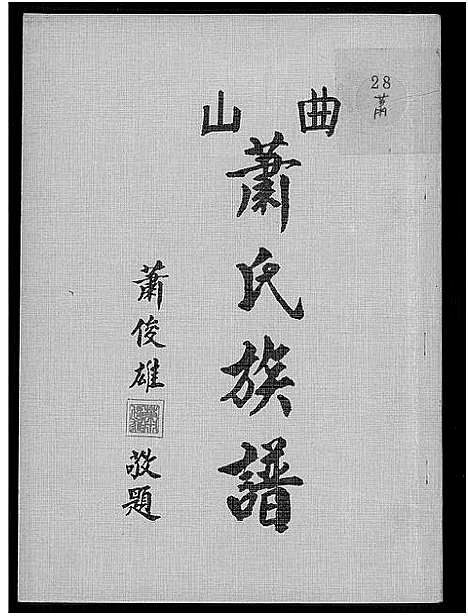 28
萧
曲山
蕭氏族譜
蕭俊雄
敬題